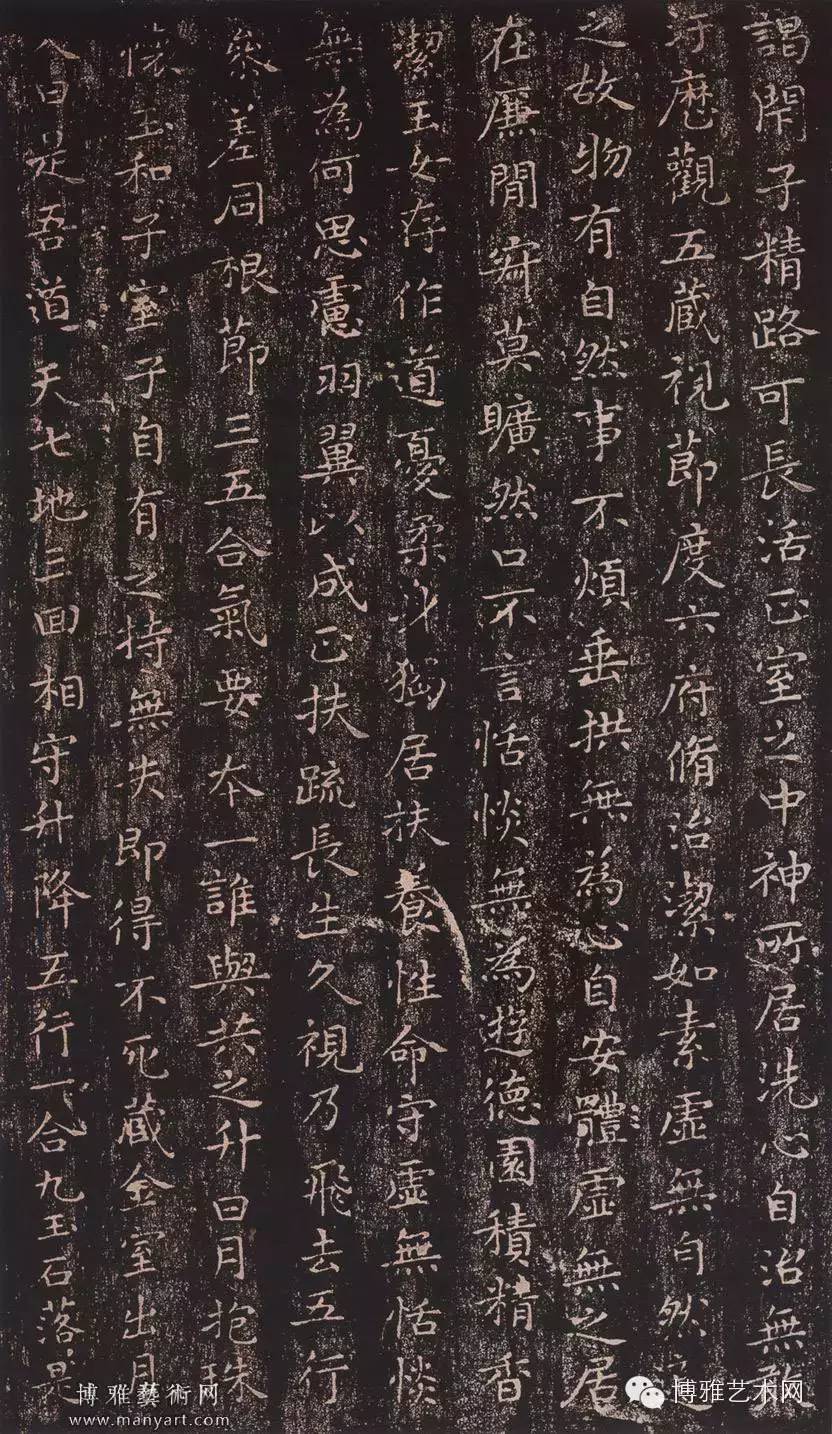 謁閇子精路可長活正室之中神所居洗心自治無敢
汙歷觀五藏視節度六府脩治潔如素虛無自然道
之故物有自然事不煩垂拱無為心自安體虛無之居
在廉閒寂莫曠然口不言恬惔無為遊德園積精香
潔玉女存作道憂柔身獨居扶養性命守虛無恬惔
無為何思慮羽翼以成正扶疏長生久視乃飛去五行
參差同根節三五合氣要本一誰與共之升日月抱珠
懷玉和子室子自有之持無失即得不死藏金室出月
入日是吾道天七地三回相守升降五行一合九玉石落是
博雅藝術网
www.manyart.com
博雅艺术网